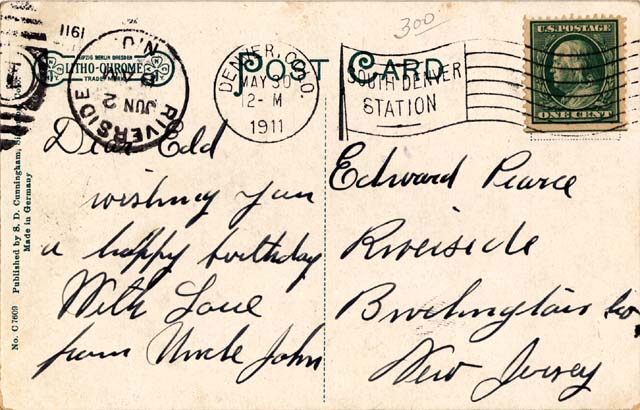 300
U.S. POSTAGE
ONE CENT
1911
RIVERSIDE
JUN 2
N.J.
LEIPZIG BERLIN DRESDEN
LITHO-CHROME
TRADE MARK
POST CARD
DENVER, COLO.
MAY 30
12-M
1911
SOUTH DENVER
STATION
Dear Edd
wishing you
a happy birthday
With Love
from Uncle John
Edward Pearce
Riverside
Burlington Co.
New Jersey
No. C 7609 Published by S. D. Cunningham,
Made in Germany